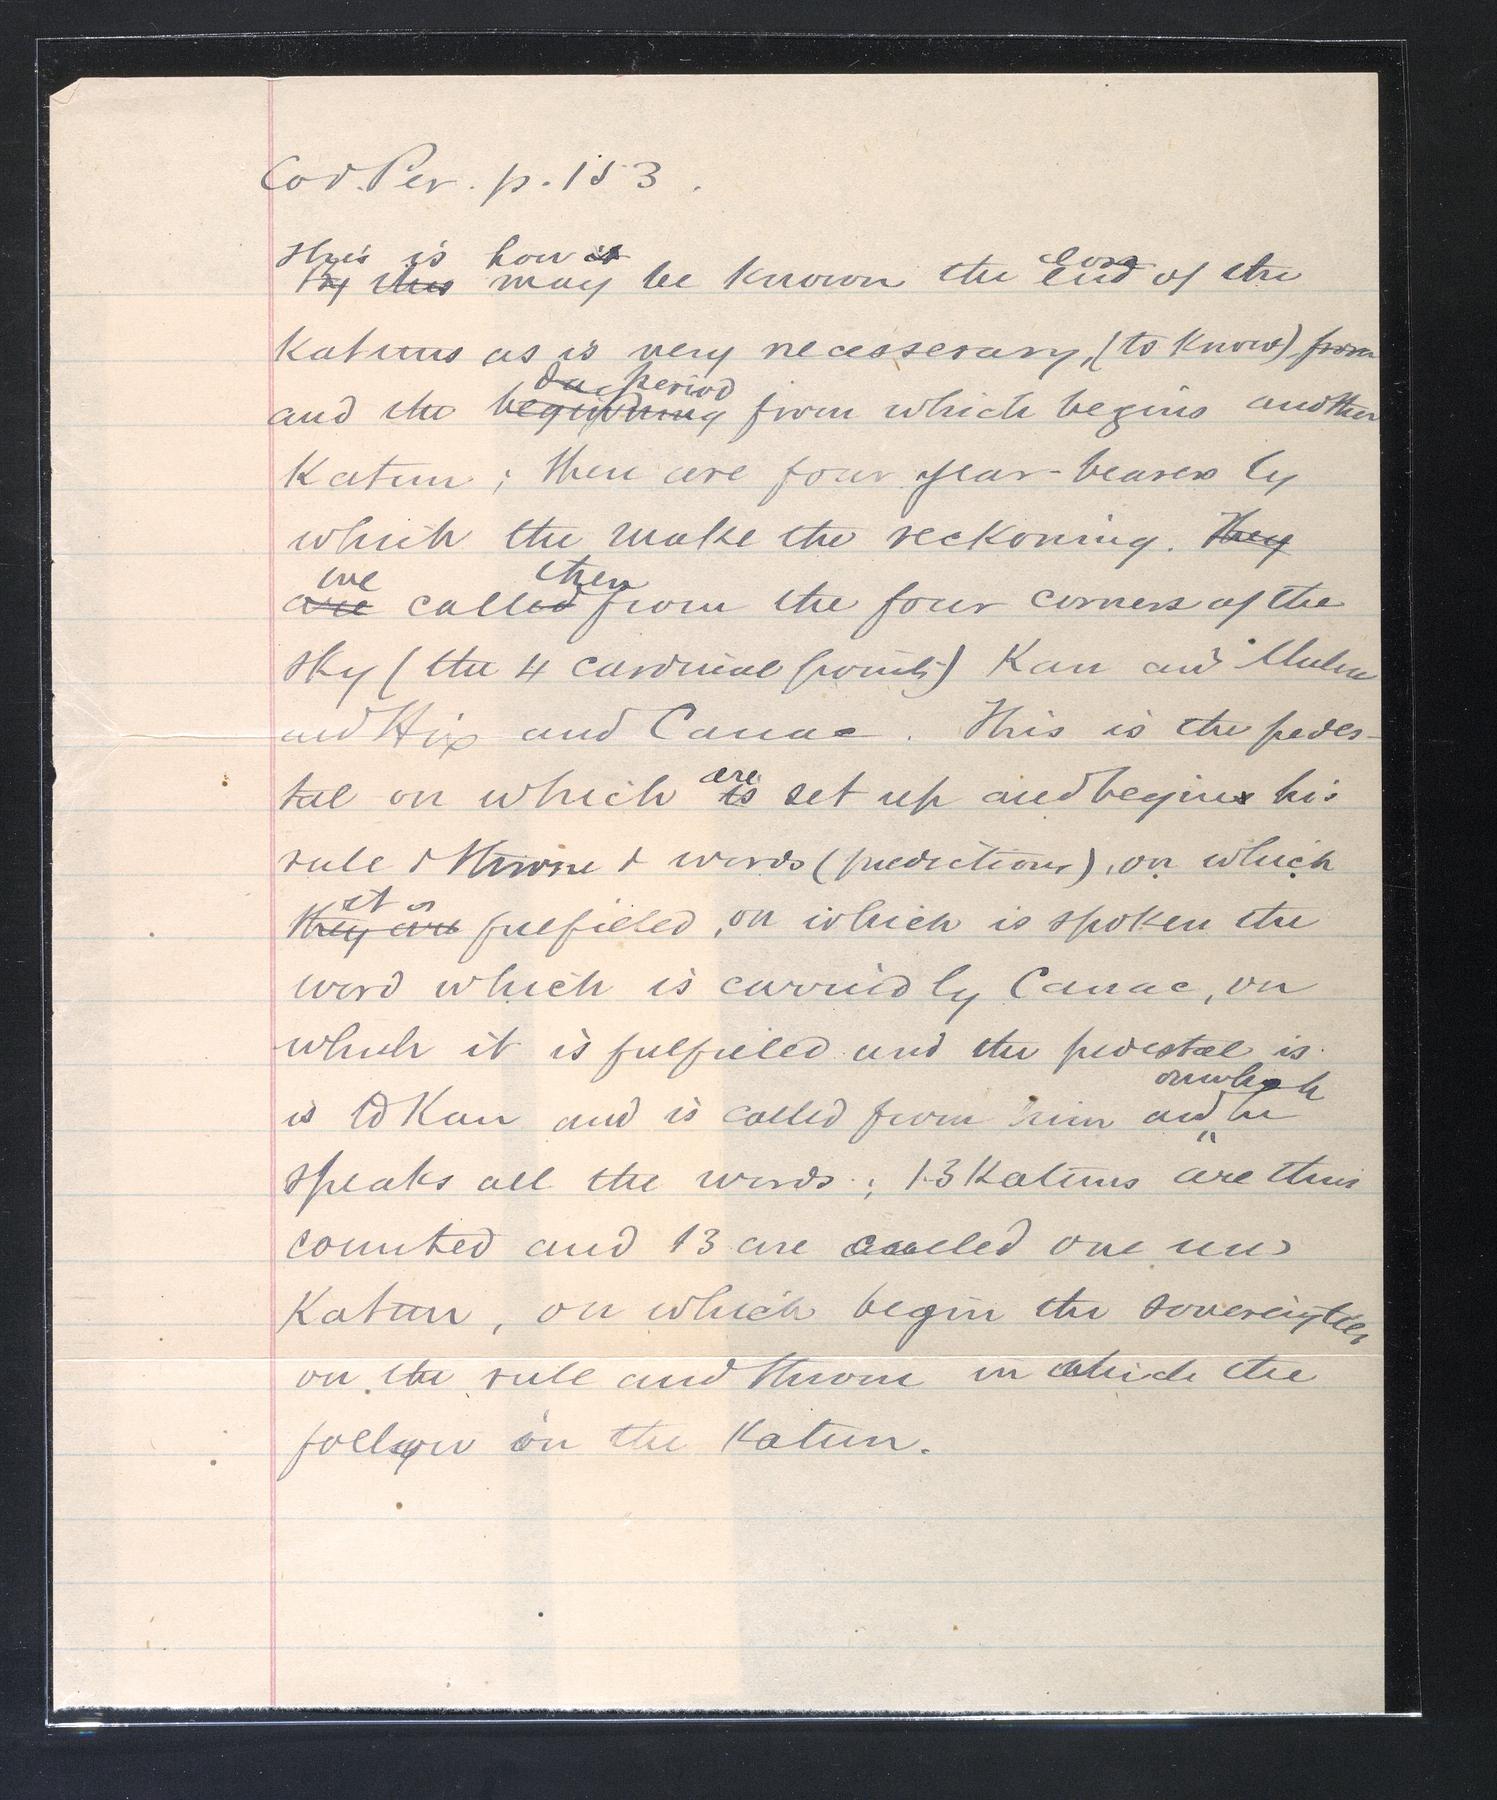 Cod. Per. p. 153.
This is how it
By this may be known the close end of the
Katuns as is very necesserary, (to know) from
and the day period beginning from which begins another
Katun; then are four year-bearers by
which the make the reckoning. They
are called then from the four corners of the
sky (the 4 cardinal points) Kan and Muluc
and Hix and Cauac. This is the pedes-
tal on which are is set up and begins his
rule & throne & words (predictions), on which
it is they are fulfilled, on which is spoken the
word which is carried by Cauac, on
which it is fulfilled and the pedestal is
is to Kan and is called from him and on which he
speaks all the words; 13 Katuns are thus
counted and 13 are called one
Katun, on which begin the sovereignties
on the rule and throne in which the
follow on the Katun.